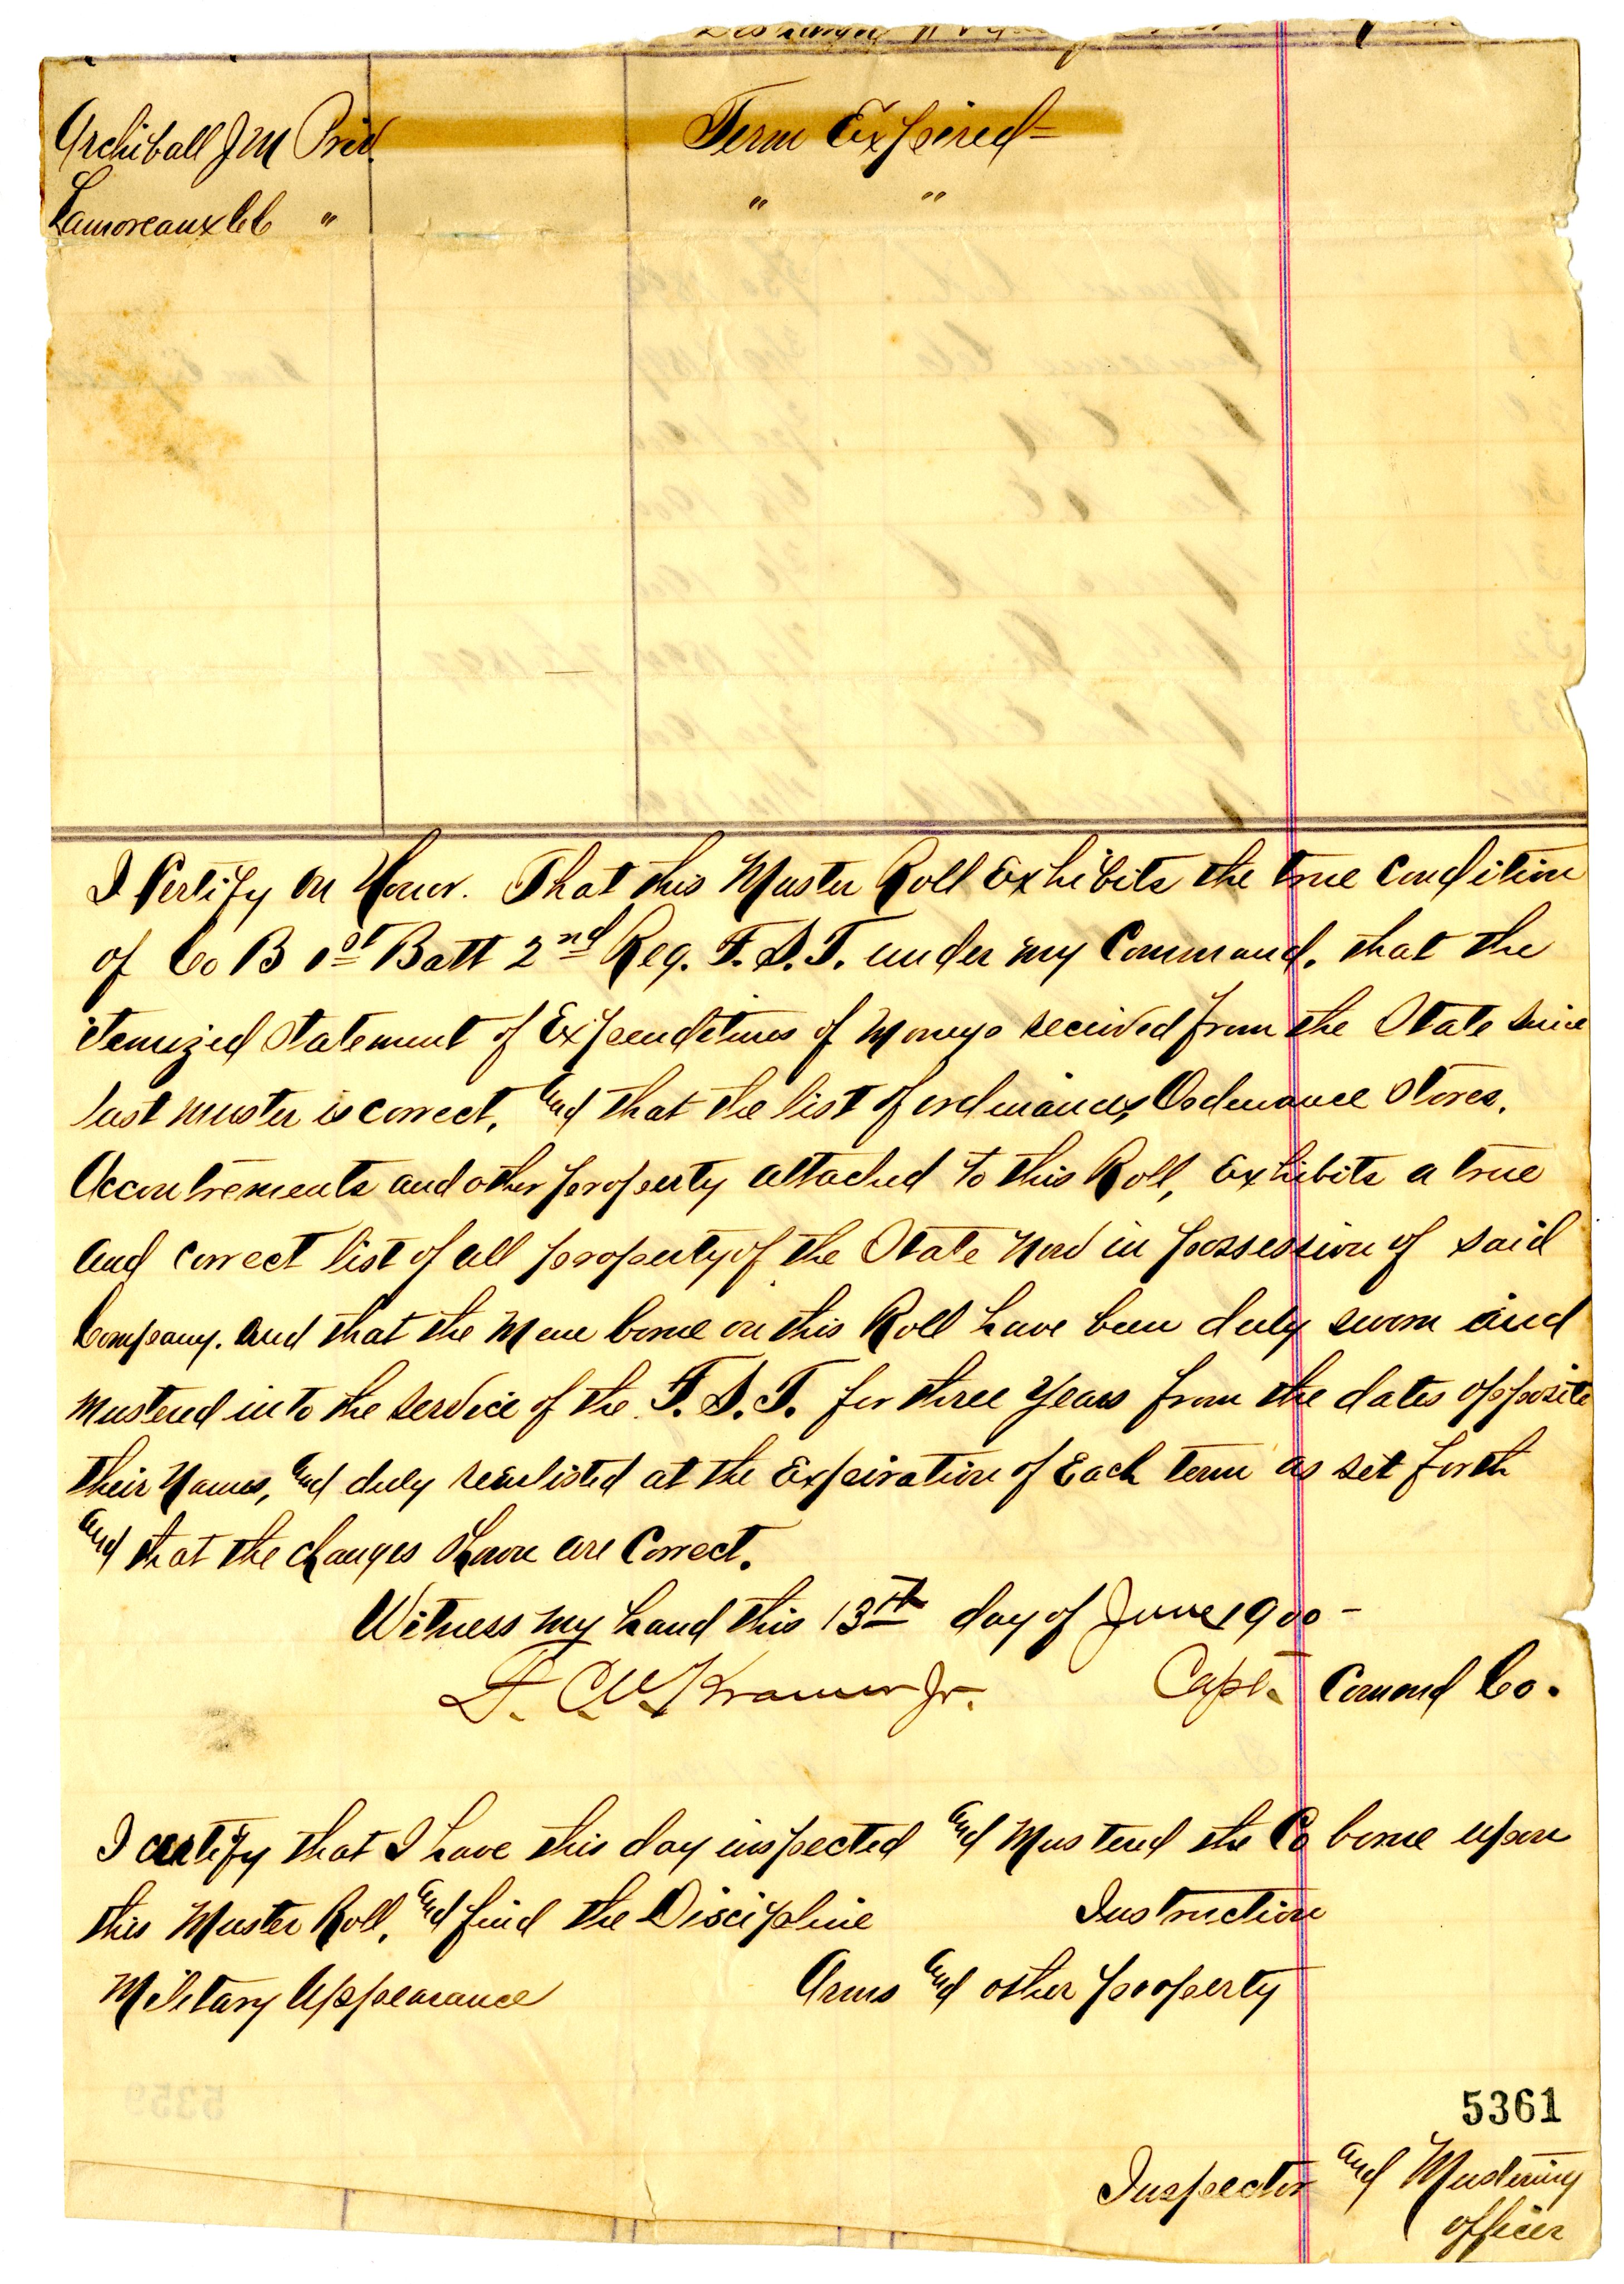 Archiball J M Priv. Term Expired=
Lamoreaux C C " " "
I Certify on Honor. That this Muster Roll Exhibits the true Condition
of Co B 1st Batt 2nd Reg. F. S. T. under my Command, that the
itemized Statement of Expenditures of Moneys received from the State since
last muster is correct, and that the list of ordinances, Ordnance Stores,
Accoutrements and other property attached to this Roll, Exhibits a true
and correct list of all property of the State now in possession of said
Company. and that the Men borne on this Roll have been duly sworn and
mustered into the service of the F. S. T. for three Years from the dates opposite
their Names, and duly reenlisted at the Expiration of Each term as set forth
and that the changes shown are Correct.
Witness my hand this 13th day of June 1900 -
Kramer Jr. Capt. Comond Co.
I certify that I have this day inspected and Mustered the Co borne upon
this Muster Roll, and find the Discipline Instruction
Military Appearance Arms and other property
5361
Inspector and Mustering
officer